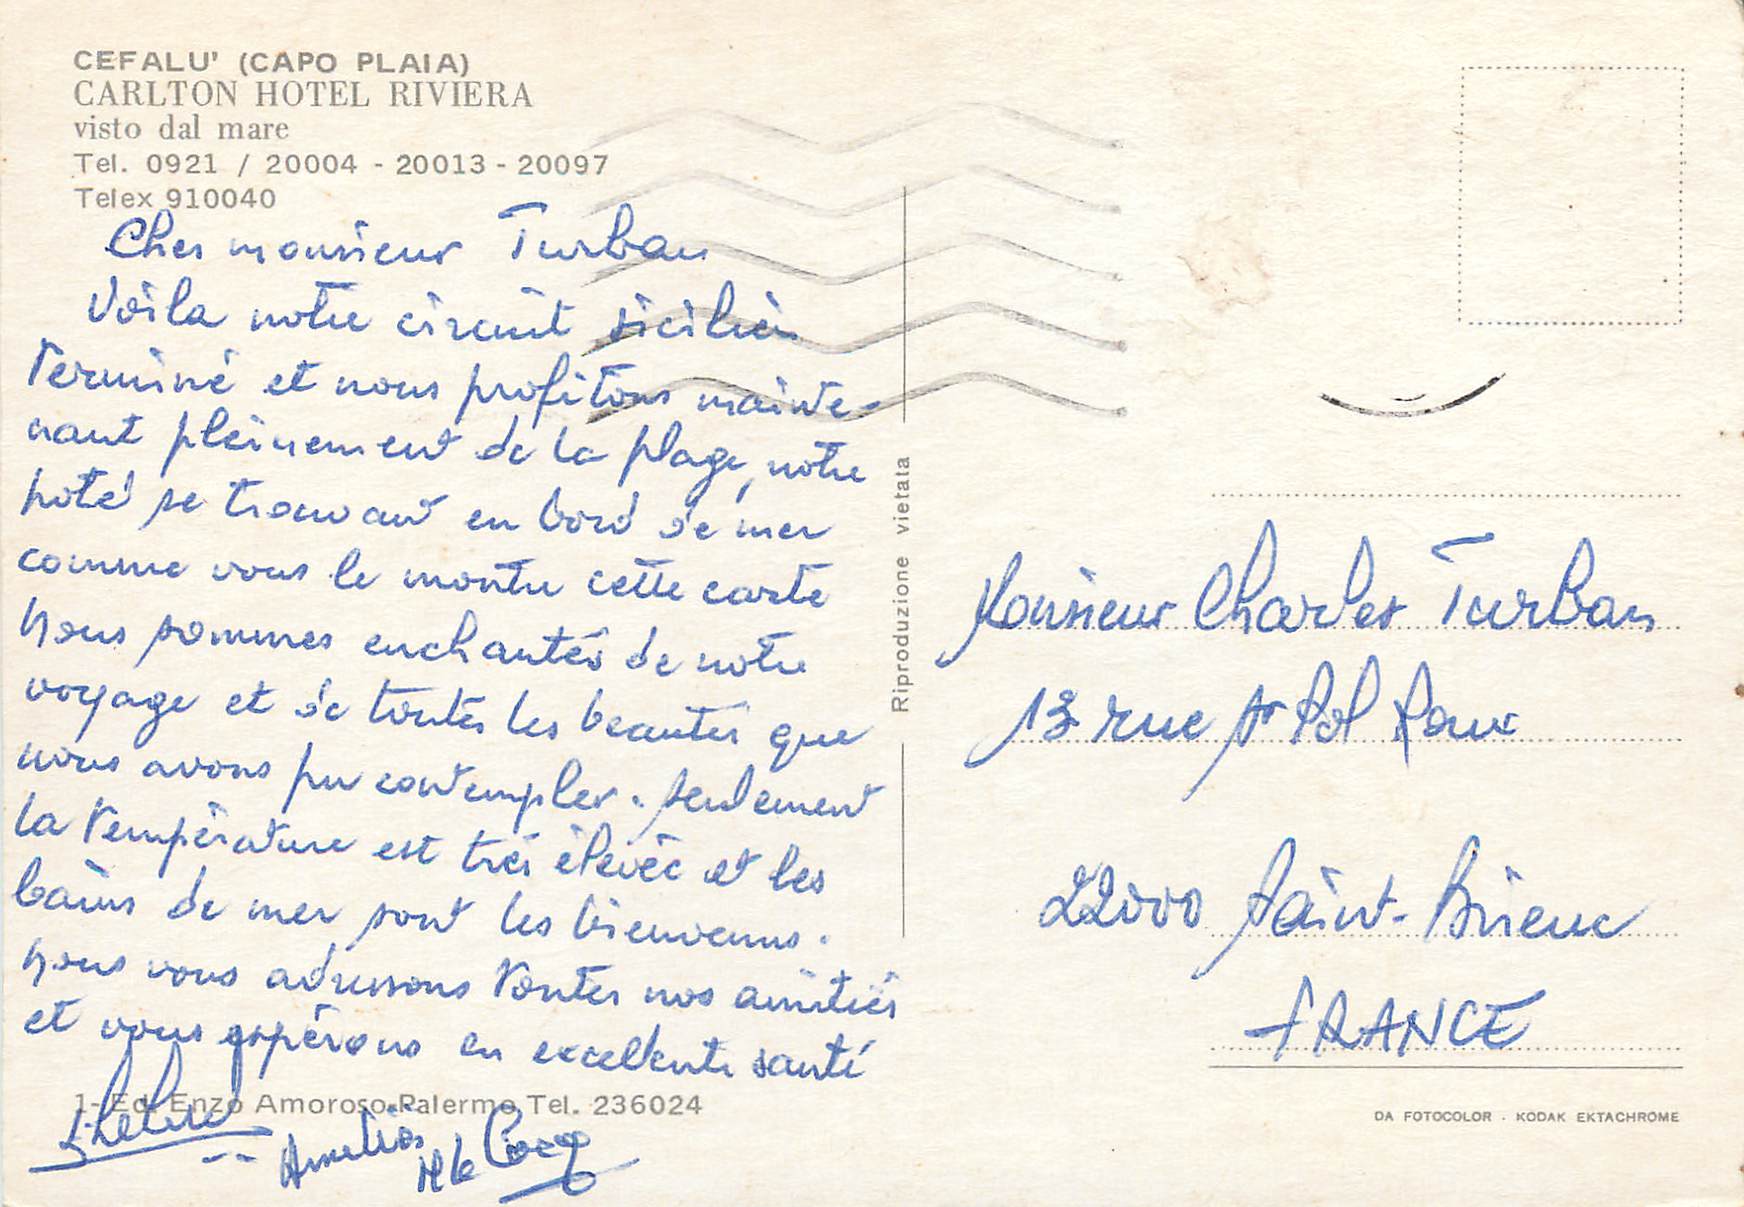 CEFALU' (CAPO PLAIA)
CARLTON HOTEL RIVIERA
visto dal mare
Tel. 0921 / 20004 - 20013 - 20097
Telex 910040
Cher monsieur Turban
Voila notre circuit sicilien
terminé et nous profitons mainte-
nant pleinement de la plage, notre
hotel se trouvant en bord de mer
comme vous le montre cette carte
Nous sommes enchantés de notre
voyage et de toutes les beautés que
nous avons pu contempler. Seulement
la température est très élevée et les
bains de mer sont les bienvenus.
Nous vous adressons toutes nos amitiés
et vous espérons en excellente santé
1 - Ed. Enzo Amoroso-Palermo Tel. 236024
Riproduzione vietata
Monsieur Charles Turban
13 rue St Pol Roux
22000 Saint-Brieuc
FRANCE
DA FOTOCOLOR - KODAK EKTACHROME